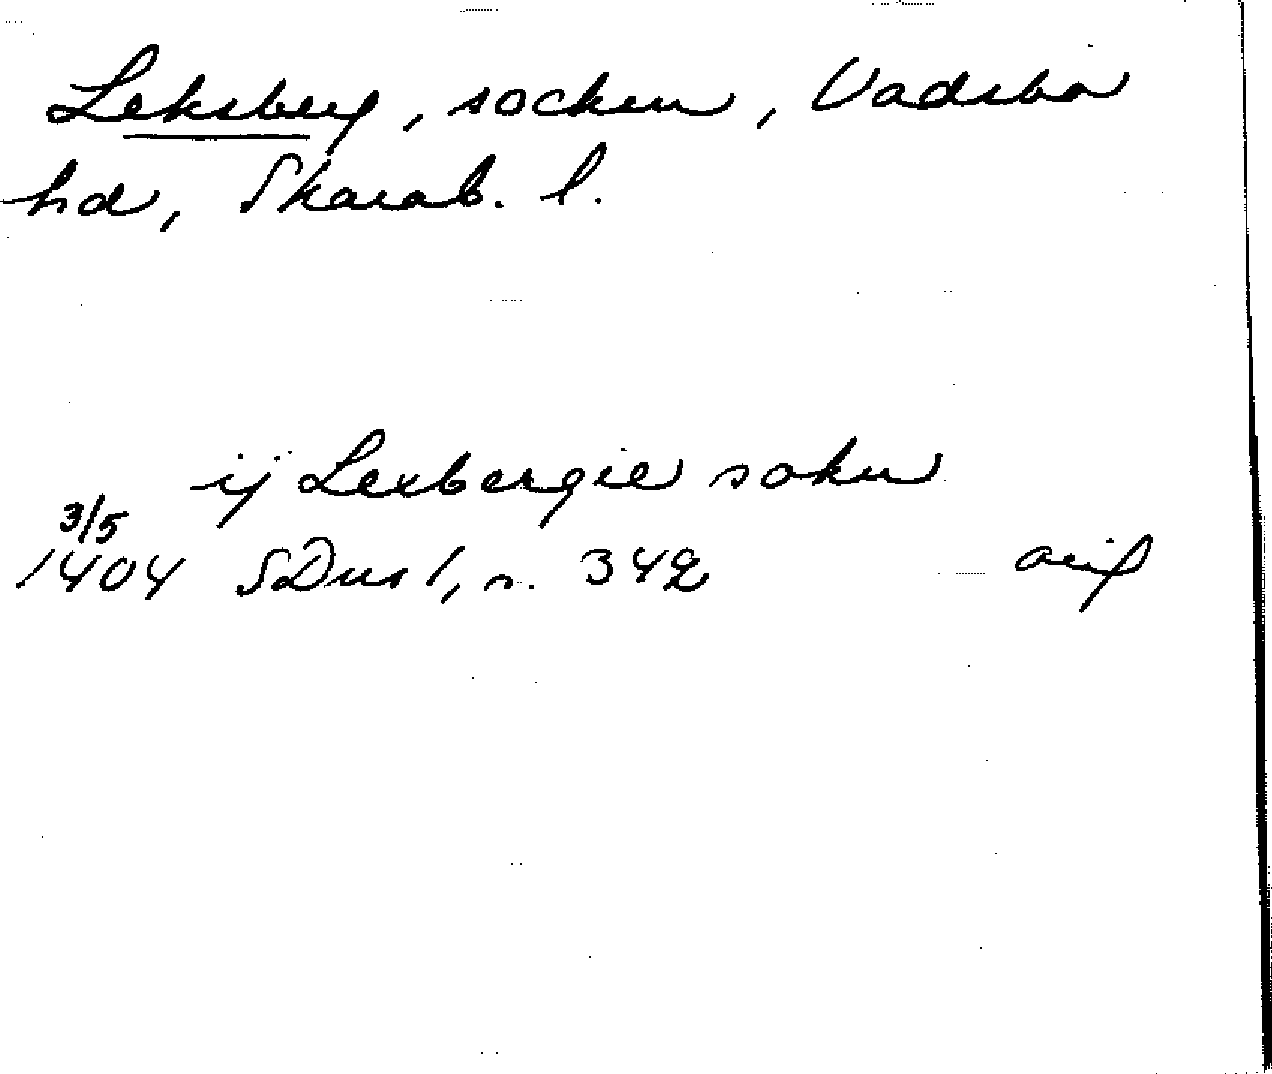 Leksberg, socken, Vadsbo
hd, Skarab. l.
ij Lexbergie sokn
3/5
1404 SDns 1, n. 342 orig